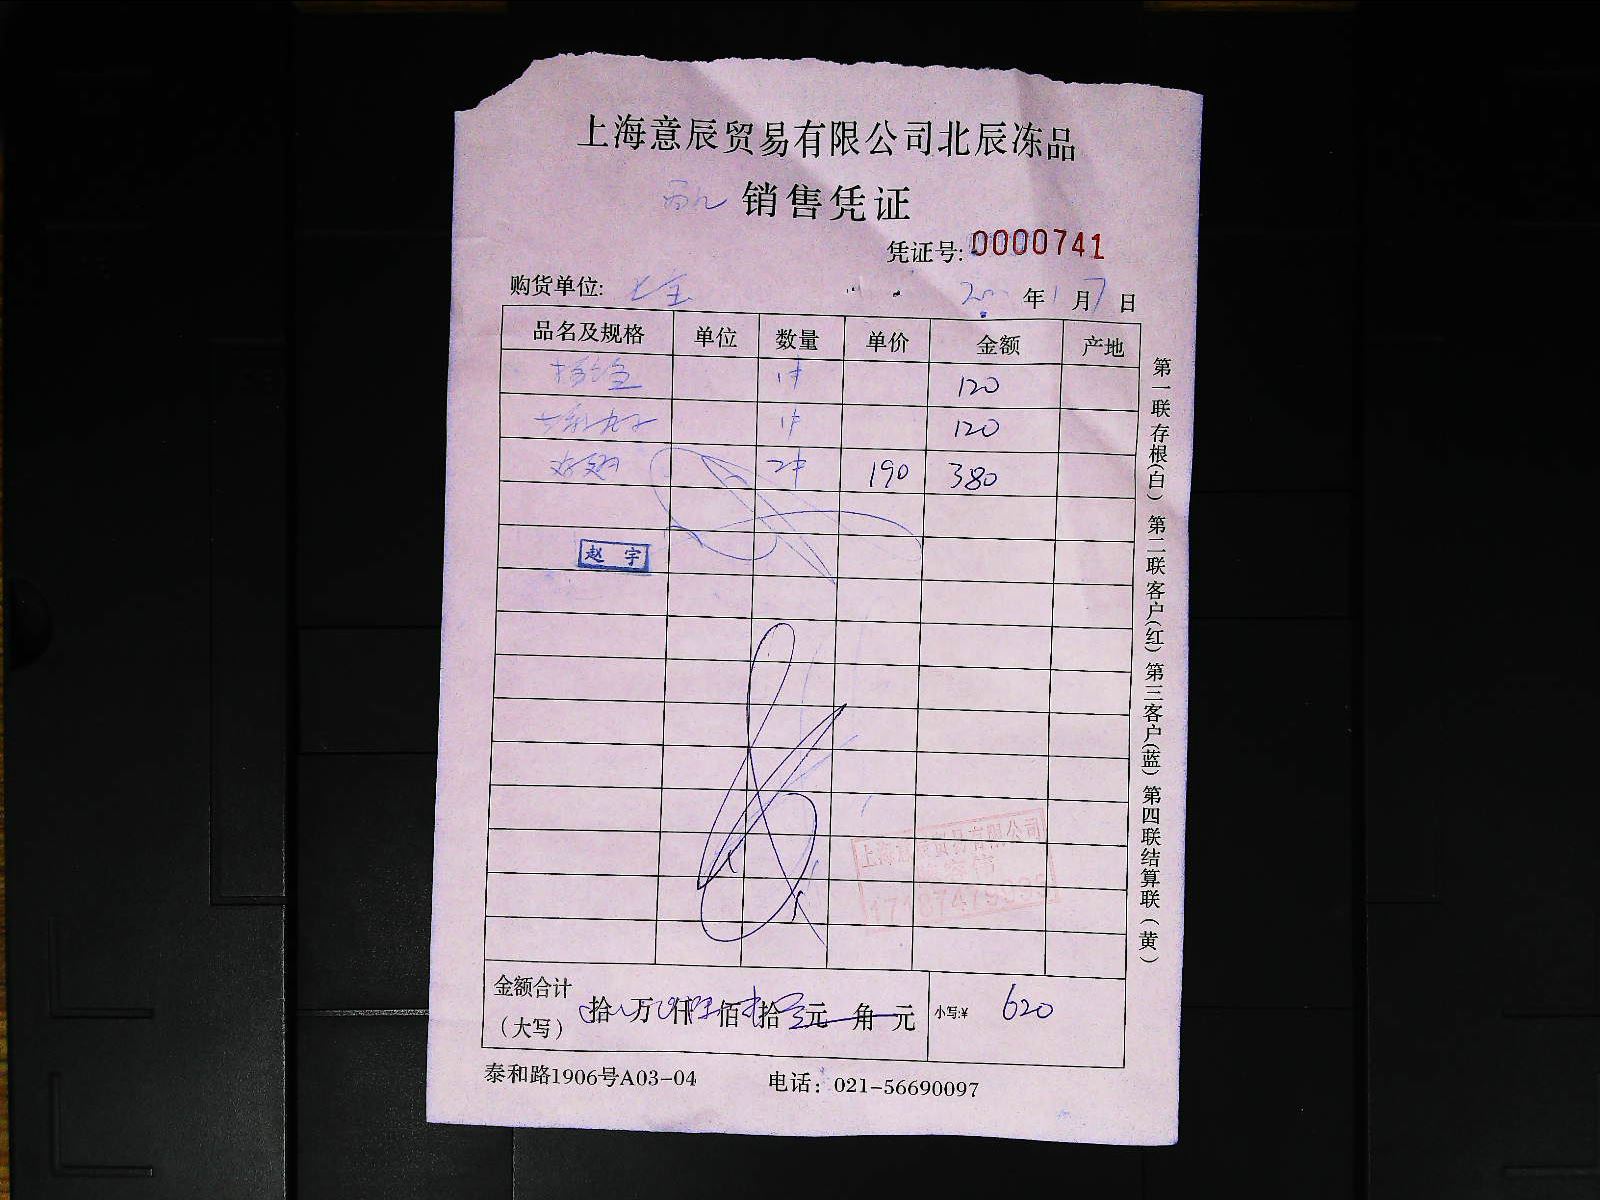 上海意辰贸易有限公司北辰冻品
销售凭证
凭证号:0000741
购货单位:
年1月7日
品名及规格 单位 数量 单价 金额 产地
1件 120
1件 120
2件 190 380
赵宇
上海意辰贸易有限公司
金额合计
(大写)
拾 万 仟 佰 拾 元 角 元 小写:¥ 620
泰和路1906号A03-04 电话：021-56690097
第一联存根(白) 第二联客户(红) 第三客户(蓝) 第四联结算联(黄)